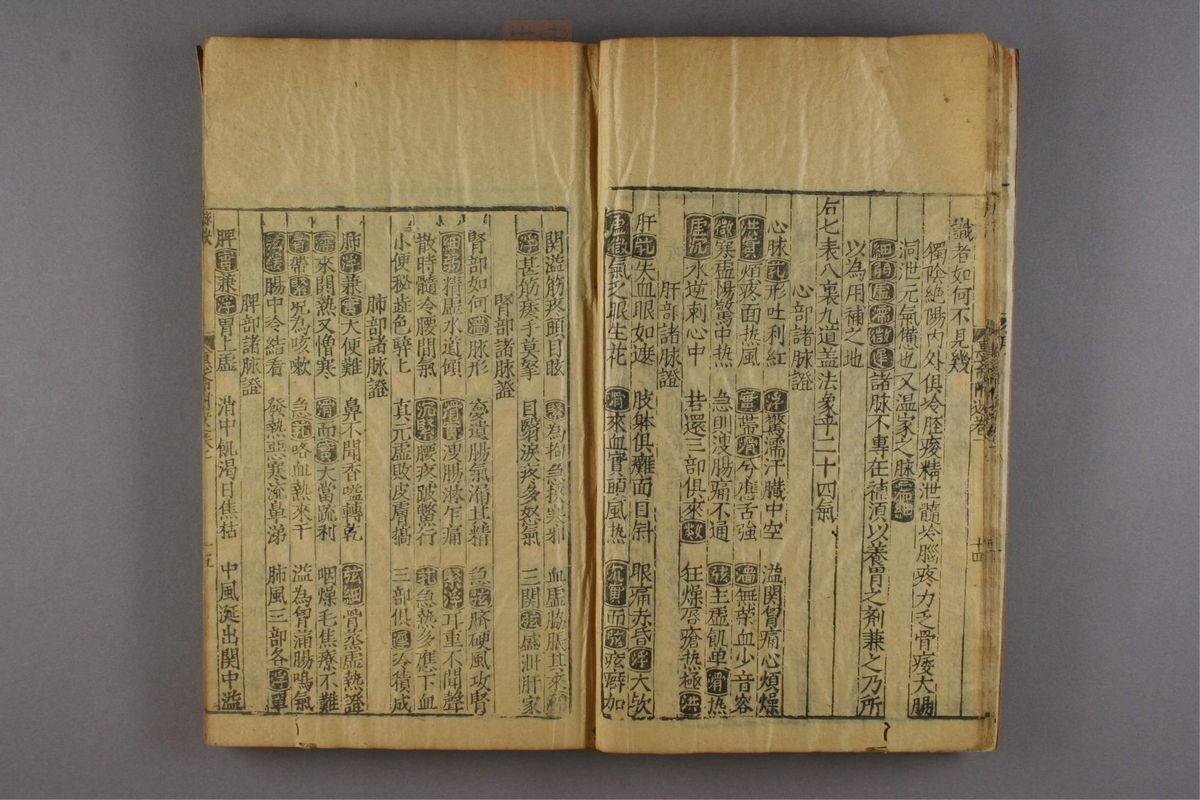 識者如何不見幾
獨陰絶陽内外俱冷脛痠精泄髓冷腦疼力乏骨痿大腸
洞泄元氣憊也又温家之脉
細弱虚濡微遲諸脉不專在補須以養胃之剤兼之乃所
以為用補之地
右七表八裏九道盖法象乎二十四氣
心部諸脉證
心脉芤形吐利紅 浮驚濡汗臓中空 溢関胷痛心煩燥
洪實煩疼面熱風 實帶滑兮應舌強 濇無榮血少音容
微寒虚惕驚中熱 急則洩腸痛不通 弦主虚飢单滑热
虚沉水逆刺心中 甚還三部俱來数 狂燥唇瘡热極洪
肝部諸脉證
肝芤失血眼如遮 肢躰俱癱面目斜 眼痛赤昏浮大欤
虚微氣乏眼生花 滑來血實頭風热 沉實而弦痃癖加
関溢筋疼頭目眩 緊為拘急挾寒邪 血虚脇脹其來
浮甚筋痿手莫拏 目翳淚疼多怒氣 三関弦盛泄肝家
腎部諸脉證
腎部如何濡脉形 遺腸氣滑其精 急弦臍硬風攻腎
細弱精虚水道傾 滑實洩腸淋乍痛 緊浮耳重不聞聲
散時髓冷腰間氣 沉緊腰疼跛鱉行 芤急熱多應下血
小便秘澁色騂騂 真元虚敗皮膚搞 三部俱遲冷積成
肺部諸脉證
肺浮兼實大便難 鼻不聞香嗌轉乾 弦細骨蒸虚熱證
濡來関熱又憎寒 滑而實大當疏利 咽燥毛焦療不難
有帶緊咒為咳嗽 急芤咯血熱來干 溢為胷満腸鳴氣
弦緩腸中冷結看 發熱惡寒流鼻涕 肺風三部各浮單
脾部諸脉證
脾實兼浮胃上虚 消中飢渴日焦枯 中風涎出関中溢